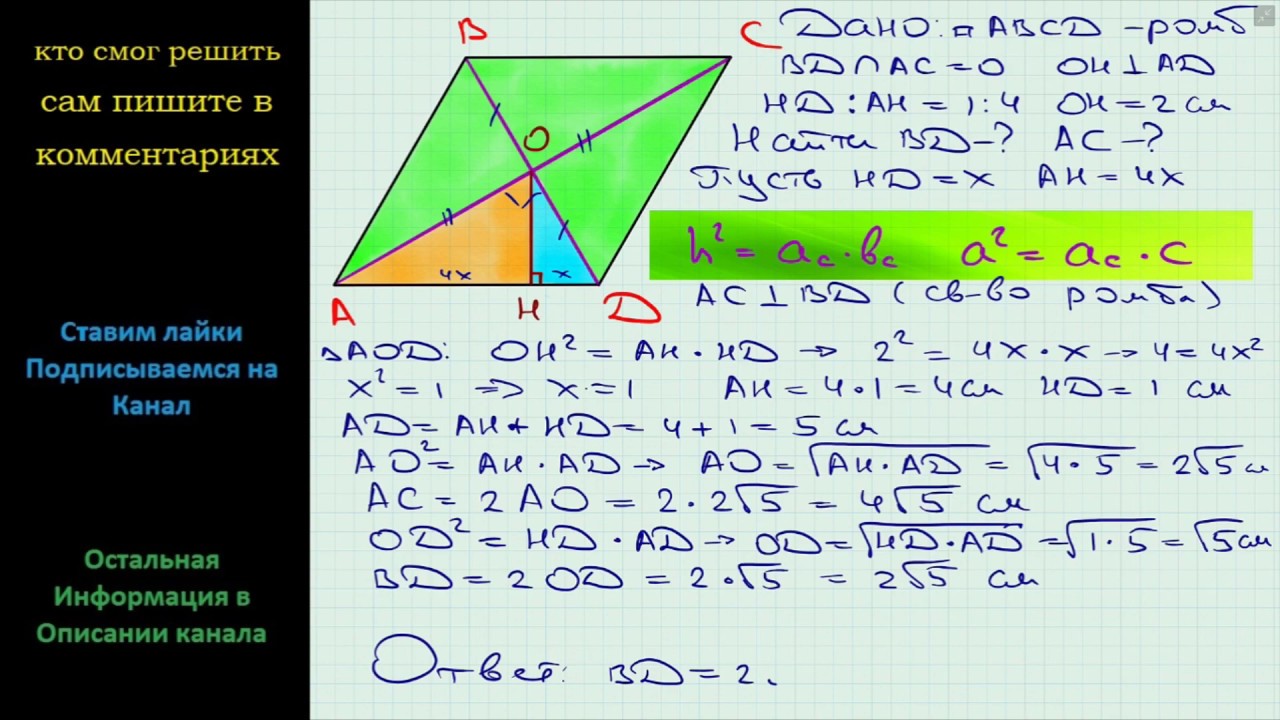 кто смог решить
сам пишите в
комментариях
Ставим лайки
Подписываемся на
Канал
Остальная
Информация в
Описании канала
B
C
O
4x
x
A
H
D
Дано: ▱ABCD - ромб
BD∩AC=O OH⊥AD
HD:AH=1:4 OH=2см
Найти BD-? AC-?
Пусть HD=x AH=4x
h²=a_c·b_c a²=a_c·c
AC⊥BD (св-во ромба)
△AOD: OH²=AH·HD → 2²=4x·x → 4=4x²
x²=1 => x=1 AH=4·1=4см HD=1 см
AD=AH+HD=4+1=5см
AO²=AH·AD → AO=√AH·AD=√4·5=2√5см
AC=2AO=2·2√5=4√5 см
OD²=HD·AD → OD=√HD·AD=√1·5=√5см
BD=2OD=2·√5=2√5 см
Ответ: BD=2